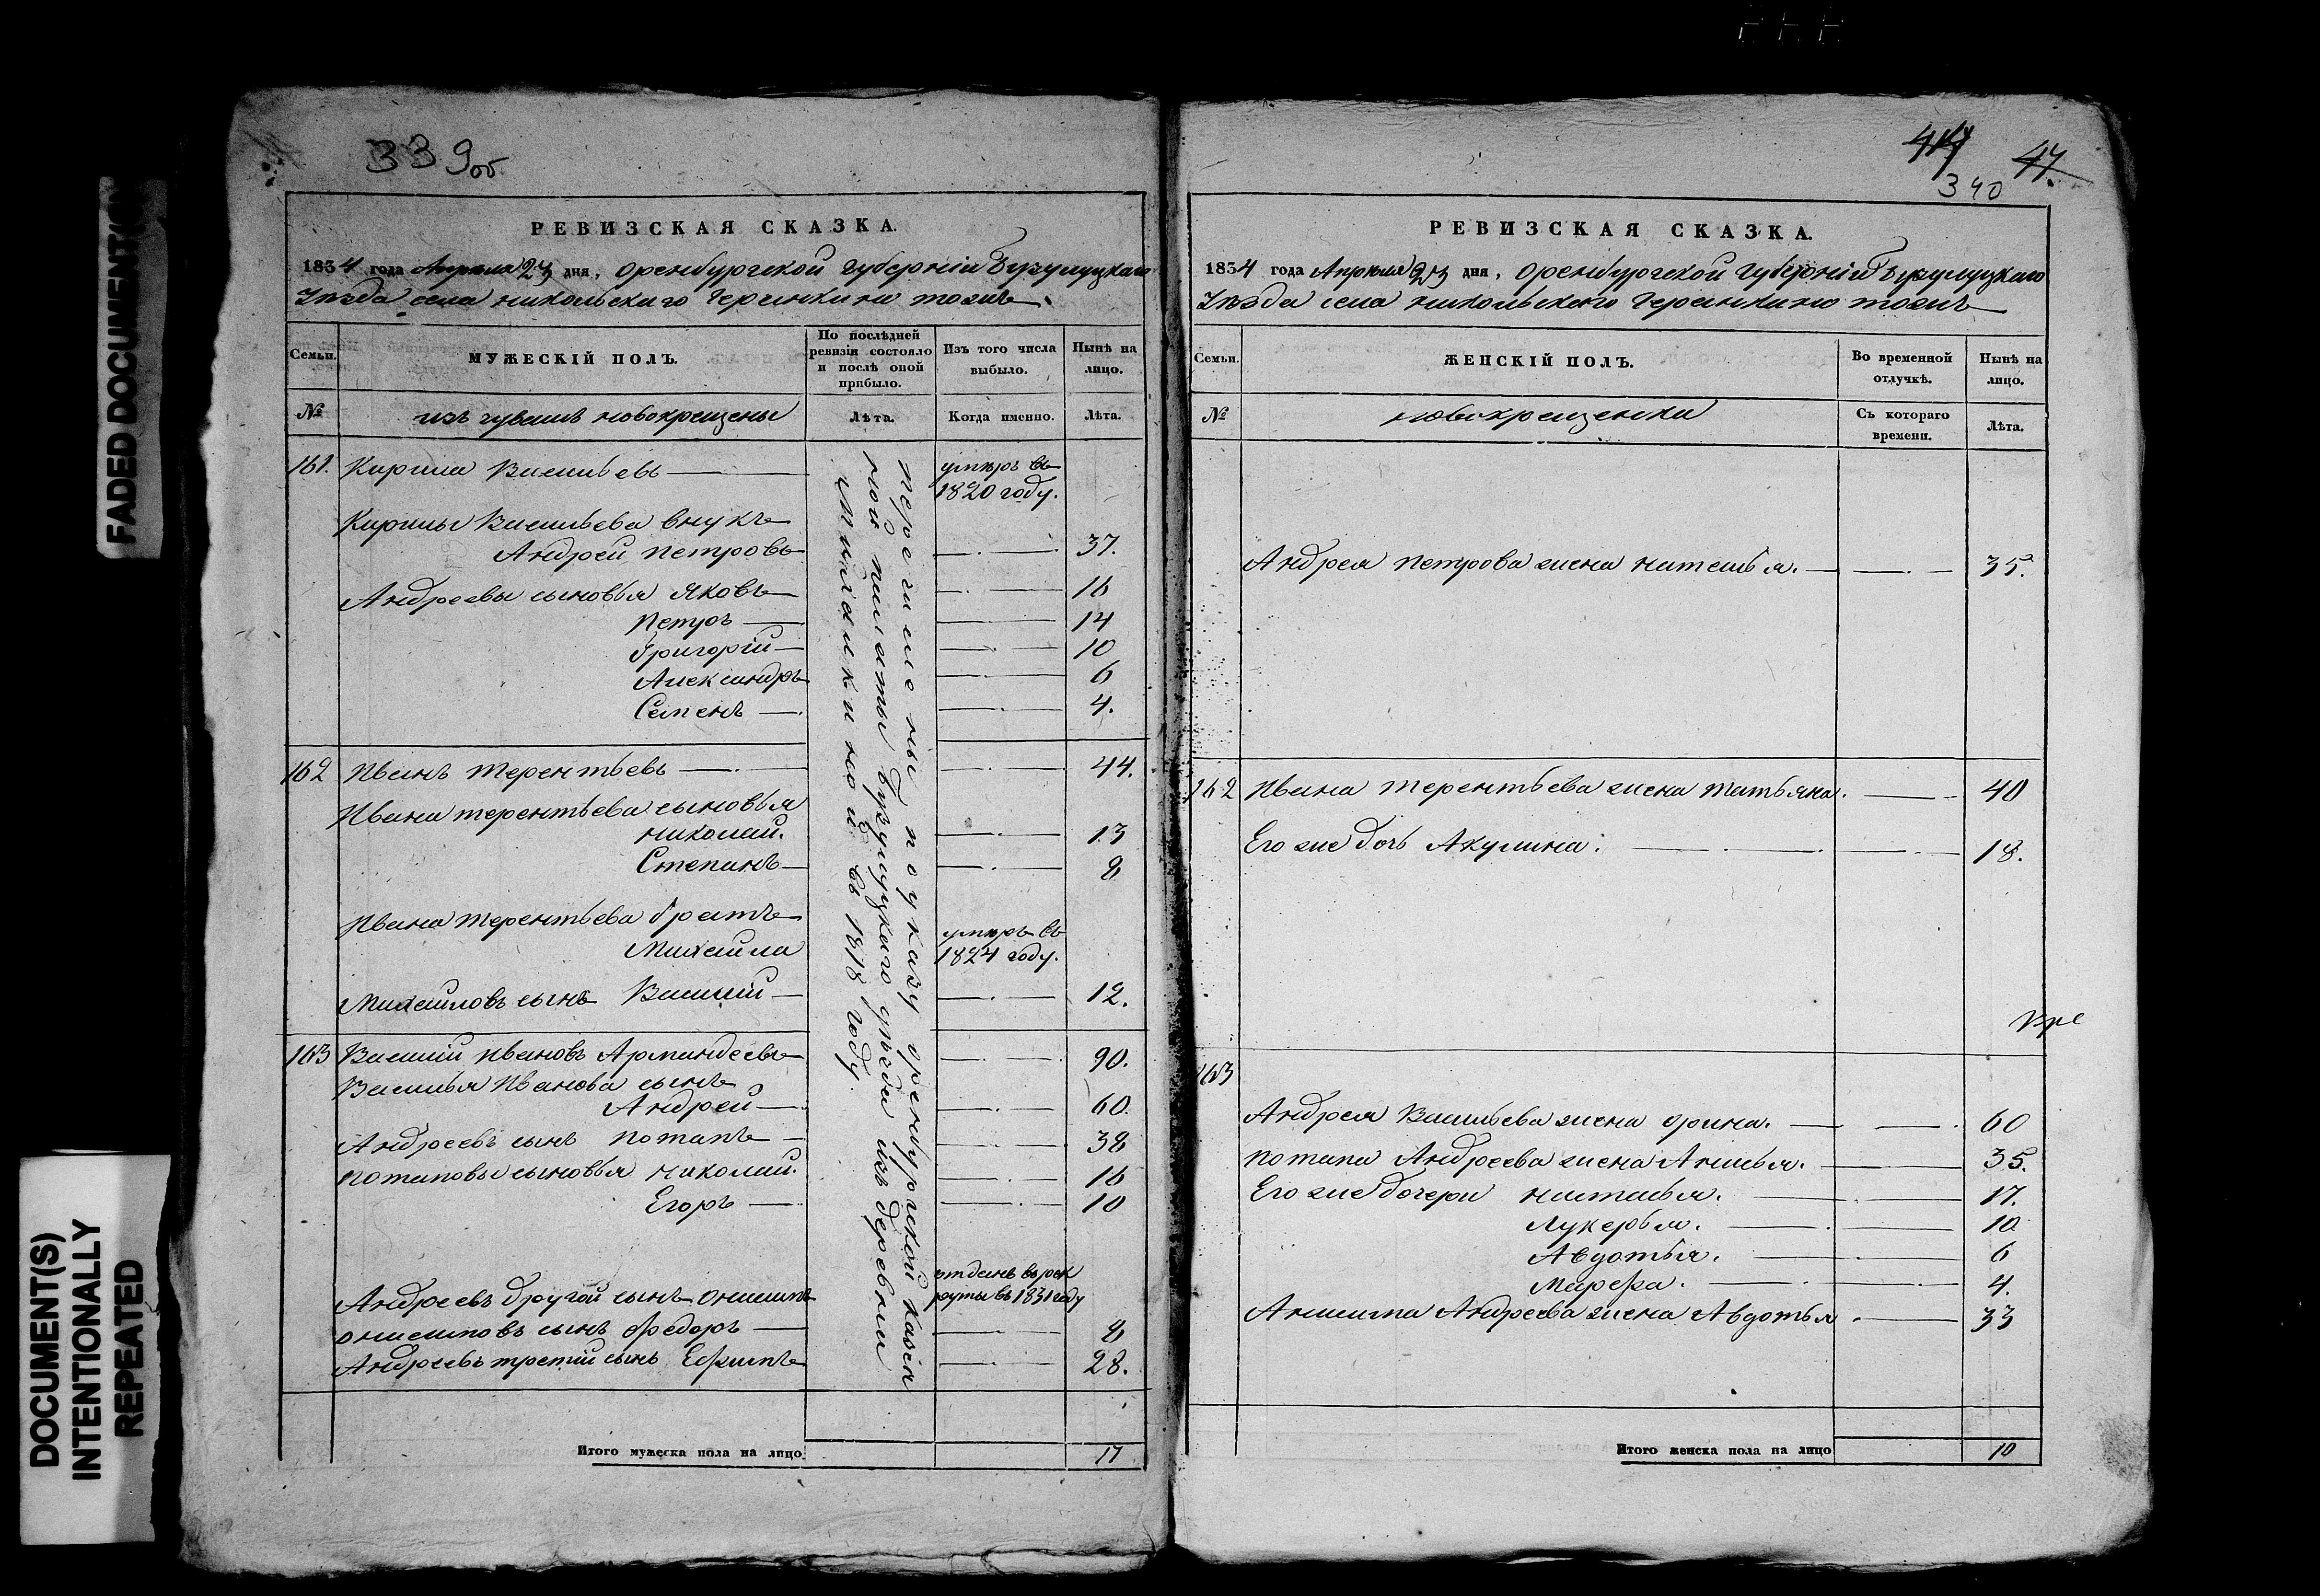 FADED DOCUMENT(
DOCUMENT(S)
INTENTIONALLY
REPEATED
339об
РЕВИЗСКАЯ СКАЗКА.
1834 года Апреля 23 дня, Оренбургской Губернiи Бузулуцкаго
Уѣзда села никольскаго
Семьи. МУЖЕСКІЙ ПОЛЪ. По послѣдней ревизіи состояло и послѣ оной прибыло. Изъ того числа выбыло. Нынѣ на лицо.
№ изъ чувашъ новокрещены Лѣта. Когда именно. Лѣта.
161. Кирила Васильевъ умеръ въ 1820 году.
Кирилы Васильева внукъ
Андрей петровъ 37.
Андреевы сыновья Яковъ 16
Петръ 14
Григорій 10
Александръ 6
Семенъ 4.
162 Иванъ терентьевъ 44.
Ивана терентьева сыновья
николай. 13
Степанъ 8
Ивана терентьева братъ
Михайла умеръ въ 1824 году.
Михайловъ сынъ Василий 12.
163 Василий ивановъ Армандеевъ 90.
Василья Иванова сынъ
Андрей 60.
Андреевъ сынъ потапъ 38
потаповы сыновья николай. 16
Егоръ 10
Андреевъ другой сынъ онисимъ отданъ въ рек
руты въ 1831 году
онисимовъ сынъ Федоръ 8
Андреевъ третий сынъ Ефимъ 28.
перечислены по указу оренбургской казен
ной палаты Бузулуцкаго уѣзда изъ деревни
въ 1818 году
Итого мужеска пола на лицо. 17
47
340
РЕВИЗСКАЯ СКАЗКА.
1834 года Апреля 23 дня, Оренбургской Губернiи Бузулуцкаго
Уѣзда села никольскаго
Семьи. ЖЕНСКІЙ ПОЛЪ. Во временной отлучкѣ. Нынѣ на лицо.
№ новокрещенки Съ котораго времени. Лѣта.
Андрея петрова жена наталья. 35.
162 Ивана терентьева жена татьяна. 40
Его же дочь Акулина. 18.
163
Андрея Васильева жена орина. 60
потапа Андреева жена Анисья. 35.
Его же дочери настасья. 17.
Лукерья. 10
Авдотья. 6
Марфа. 4.
Анисима Андреева жена Авдотья 33
Итого женска пола на лицо 10